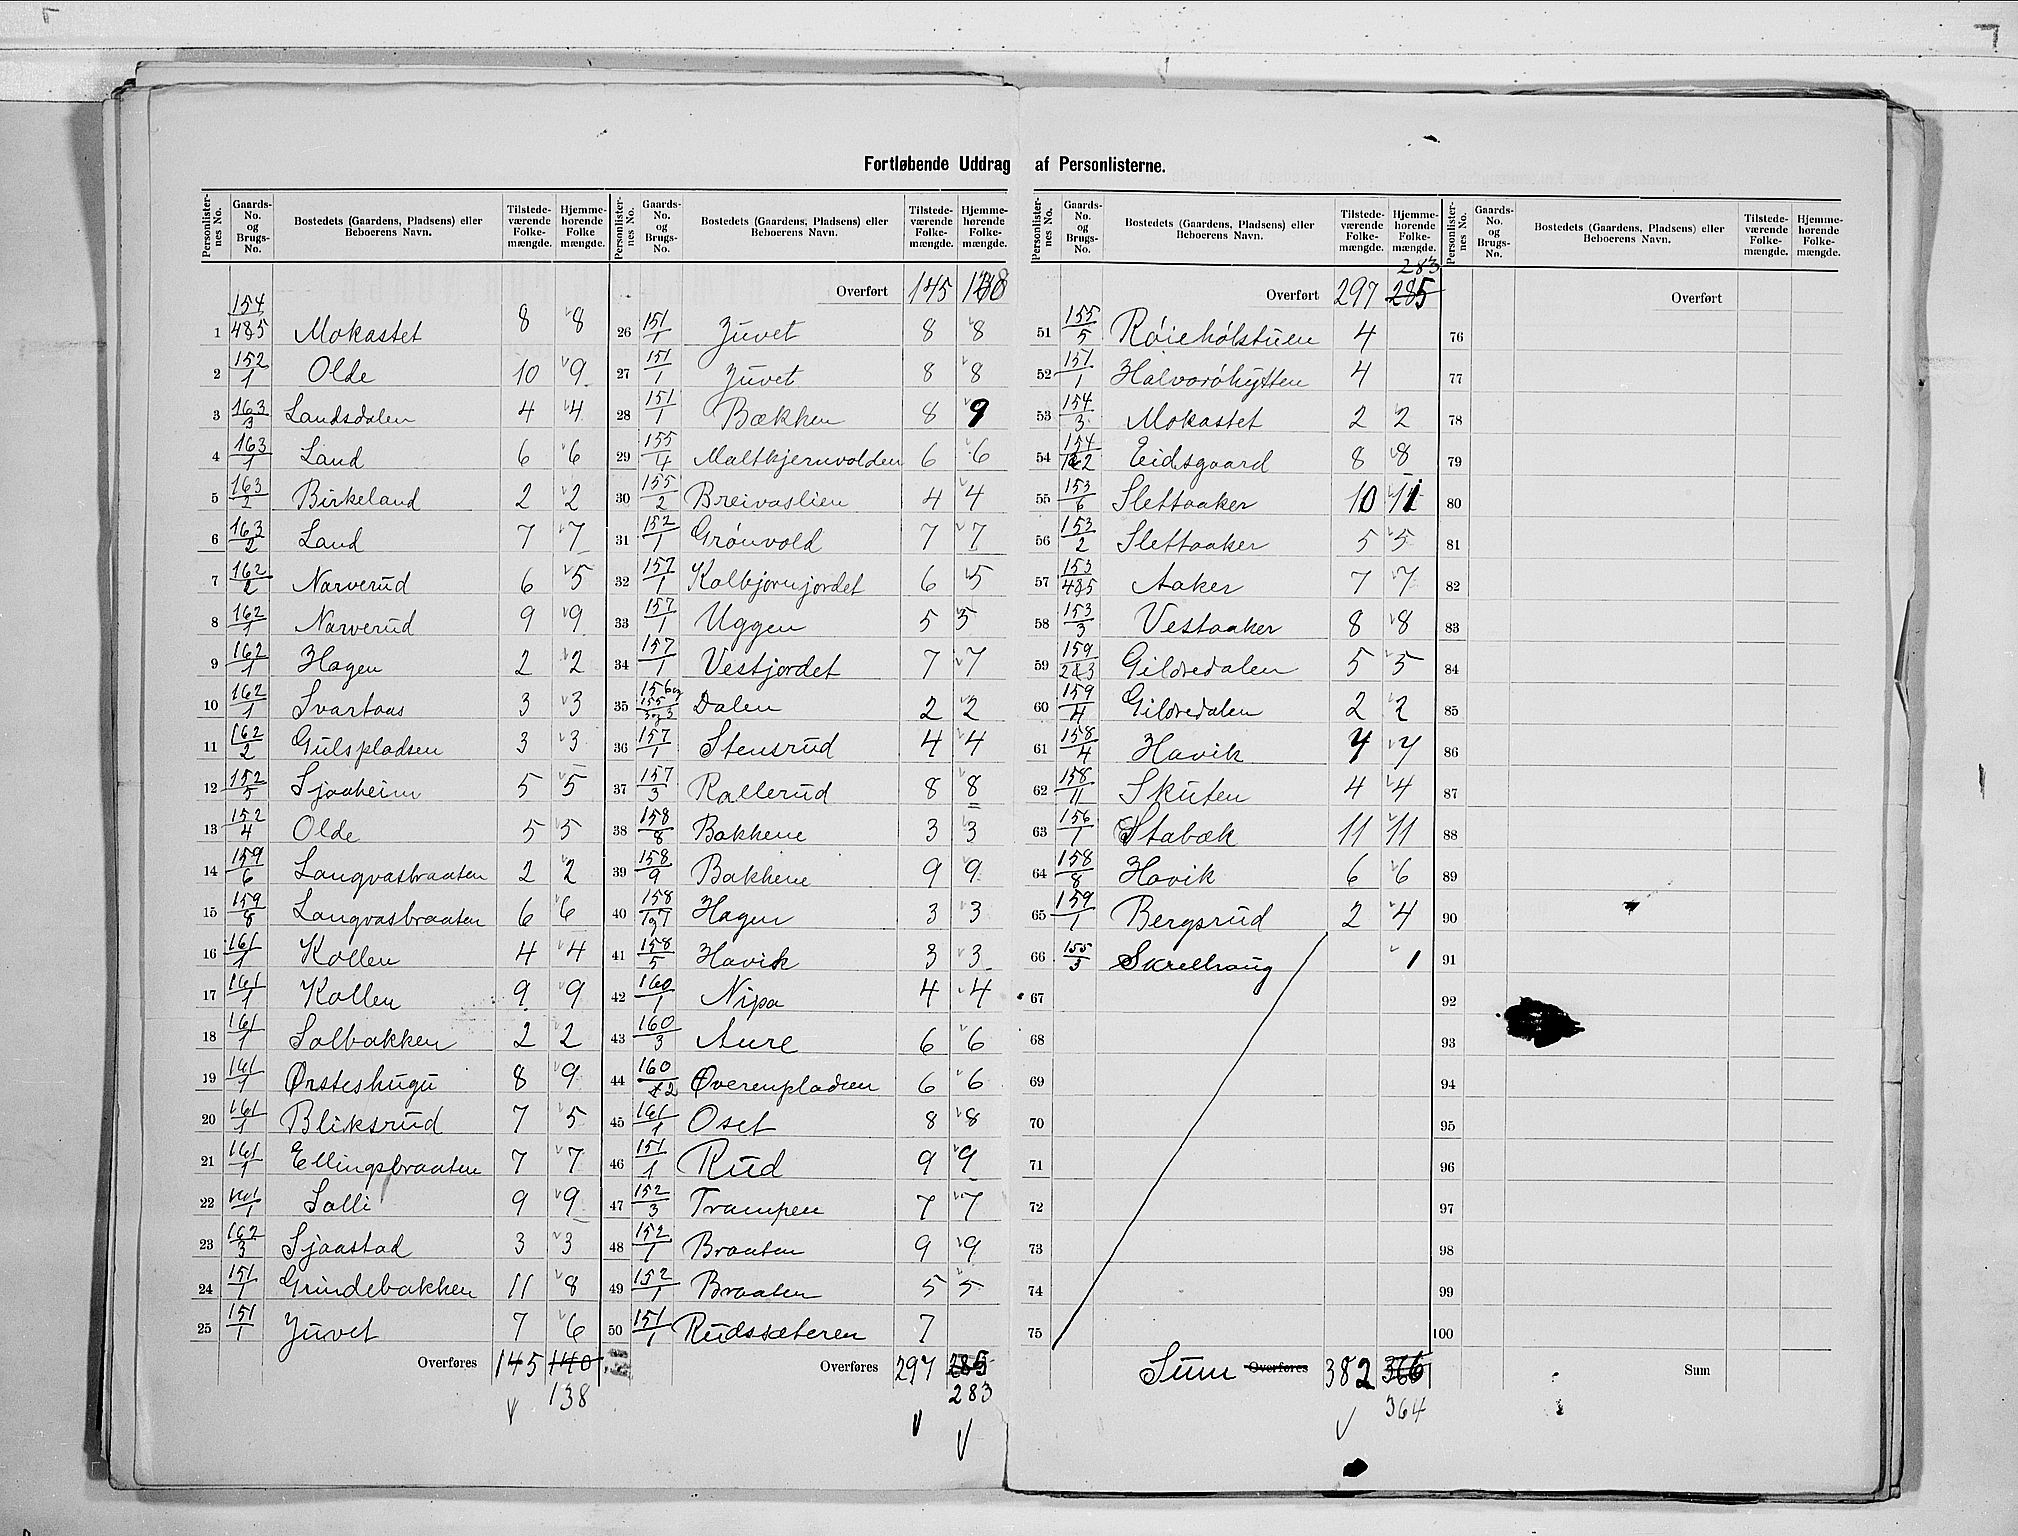 Fortløbende Uddrag af Personlisterne.
Personlisternes No. | Gaards-No. og Brugs-No. | Bostedets (Gaardens, Pladsens) eller Beboerens Navn. | Tilstedeværende Folkemængde. | Hjemmehørende Folkemængde.
1 154/4&5 Mokastet 8 8
2 152/1 Olde 10 9
3 163/3 Landsdalen 4 4
4 163/1 Land 6 6
5 163/2 Birkeland 2 2
6 163/2 Land 7 7
7 162/2 Narverud 6 5
8 162/1 Narverud 9 9
9 162/1 Hagen 2 2
10 162/1 Svartaas 3 3
11 162/2 Gulspladsen 3 3
12 152/5 Sjaaheim 5 5
13 152/4 Olde 5 5
14 159/6 Langvasbraaten 2 2
15 159/8 Langvasbraaten 6 6
16 161/1 Kollen 4 4
17 161/1 Kollen 9 9
18 161/1 Solbakken 2 2
19 161/1 Ørsteshugu 8 9
20 161/1 Bliksrud 7 5
21 161/1 Ellingsbraaten 7 7
22 161/1 Solli 9 9
23 162/3 Sjaastad 3 3
24 151/1 Grindebakken 11 8
25 151/1 Juvet 7 6
Overføres 145 140
138
Personlisternes No. | Gaards-No. og Brugs-No. | Bostedets (Gaardens, Pladsens) eller Beboerens Navn. | Tilstedeværende Folkemængde. | Hjemmehørende Folkemængde.
Overført 145 138
26 151/1 Juvet 8 8
27 151/1 Juvet 8 8
28 151/1 Bækken 8 9
29 155/4 Maltkjernvolden 6 6
30 155/2 Breivaslien 4 4
31 152/1 Grønvold 7 7
32 157/1 Kolbjørnjordet 6 5
33 157/1 Uggen 5 5
34 157/1 Vestjordet 7 7
35 156 og 155/3 og 3 Dalen 2 2
36 157/1 Stensrud 4 4
37 157/3 Rallerud 8 8
38 158/8 Bakkene 3 3
39 158/9 Bakkene 9 9
40 158/7 Hagen 3 3
41 158/5 Havik 3 3
42 160/1 Nipa 4 4
43 160/3 Aure 6 6
44 160/2 Øverenpladsen 6 6
45 161/1 Oset 8 8
46 151/1 Rud 9 9
47 152/3 Trampen 7 7
48 152/1 Braaten 9 9
49 152/1 Braaten 5 5
50 151/1 Rudssæteren 7
Overføres 297 285
283
Personlisternes No. | Gaards-No. og Brugs-No. | Bostedets (Gaardens, Pladsens) eller Beboerens Navn. | Tilstedeværende Folkemængde. | Hjemmehørende Folkemængde.
283
Overført 297 285
51 155/5 Røiehølstuen 4
52 151/1 Halvorshytten 4
53 154/3 Mokastet 2 2
54 154/1&2 Eidsgaard 8 8
55 153/6 Slettaaker 10 11
56 153/2 Slettaaker 5 5
57 153/4&5 Aaker 7 7
58 153/3 Vestaaker 8 8
59 159/2&3 Gildredalen 5 5
60 159/4 Gildredalen 2 2
61 158/4 Havik 7 7
62 158/11 Skuten 4 4
63 156/1 Stabæk 11 11
64 158/8 Havik 6 6
65 159/1 Bergsrud 2 4
66 155/3 Skrelhaug 1
67
68
69
70
71
72
73
74
75
Sum Overføres 382 366
364
Personlisternes No. | Gaards-No. og Brugs-No. | Bostedets (Gaardens, Pladsens) eller Beboerens Navn. | Tilstedeværende Folkemængde. | Hjemmehørende Folkemængde.
Overført
76
77
78
79
80
81
82
83
84
85
86
87
88
89
90
91
92
93
94
95
96
97
98
99
100
Sum